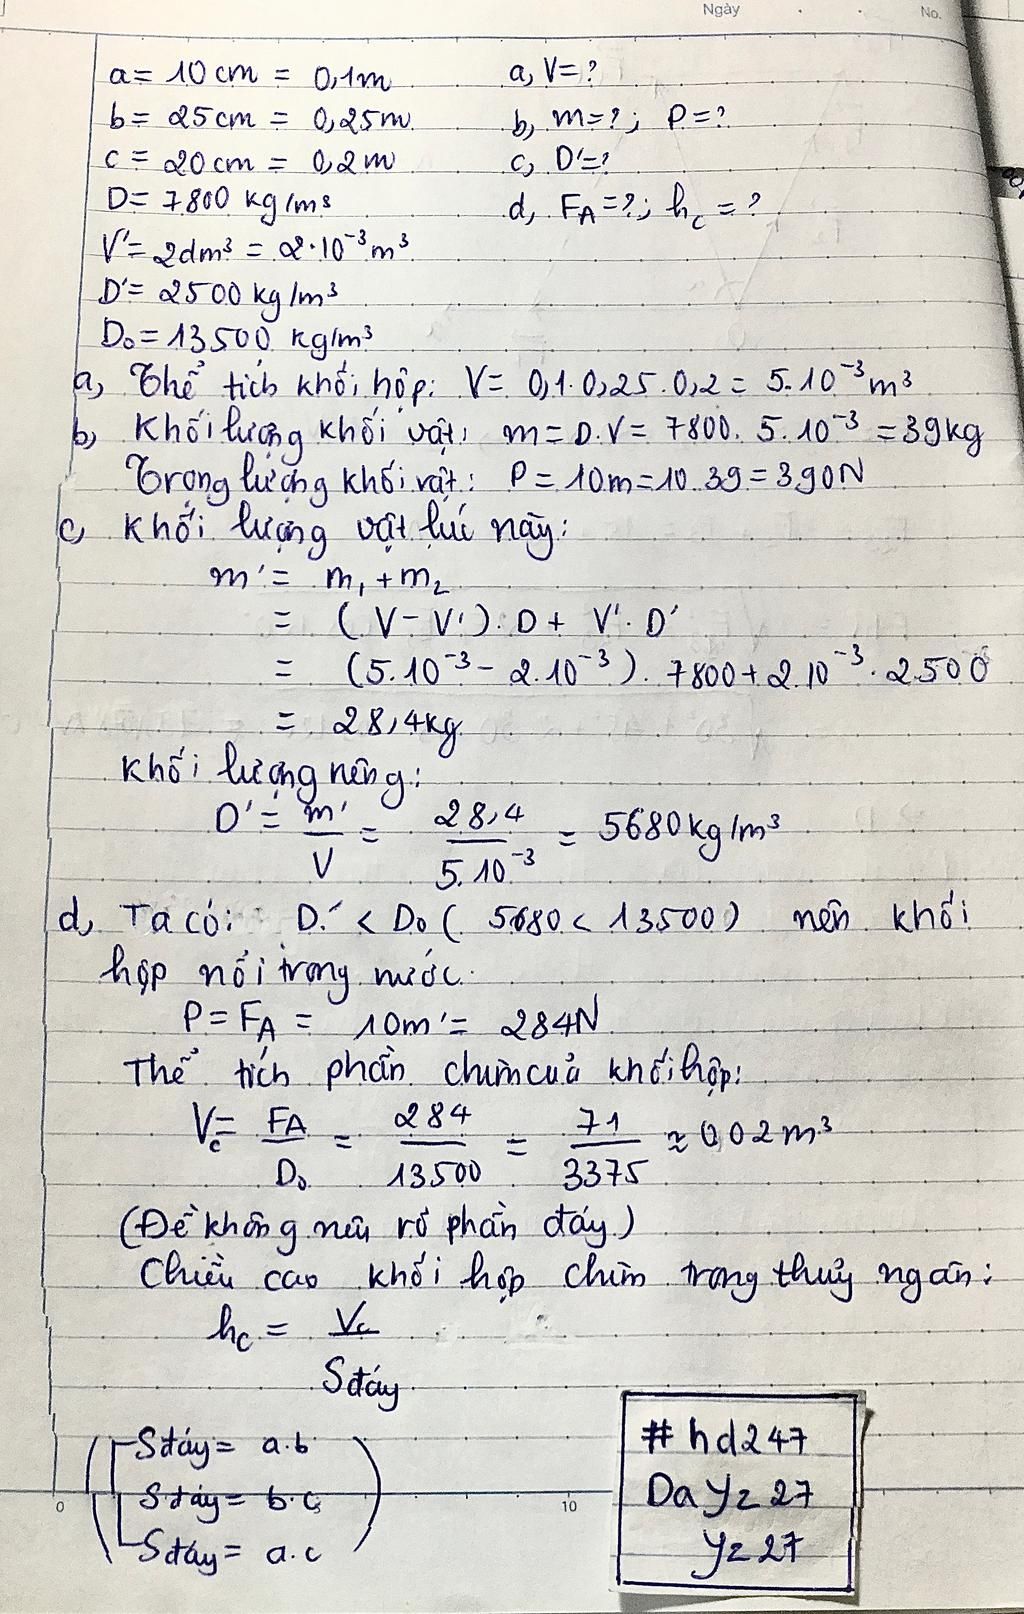 Ngày
No.
a = 10 cm = 0,1m
a, V = ?
b = 25 cm = 0,25m
b, m = ?; P = ?
c = 20 cm = 0,2m
c, D' = ?
D = 7800 kg/m³
d, F_A = ?; h_c = ?
V' = 2dm³ = 2·10⁻³ m³
D' = 2500 kg/m³
D₀ = 13500 kg/m³
a, Thể tích khối hộp: V = 0,1.0,25.0,2 = 5.10⁻³ m³
b, Khối lượng khối vật: m = D.V = 7800. 5.10⁻³ = 39kg
Trọng lượng khối vật: P = 10m = 10.39 = 390N
c, Khối lượng vật lúc này:
m' = m₁ + m₂
= (V - V'). D + V'. D'
= (5.10⁻³ - 2.10⁻³). 7800 + 2.10⁻³. 2500
= 28,4kg
Khối lượng riêng:
D' = m'/V = 28,4/5.10⁻³ = 5680 kg/m³
d, Ta có: D' < D₀ (5680 < 13500) nên khối
hộp nổi trong nước.
P = F_A = 10m' = 284N
Thể tích phần chìm của khối hộp:
V_c = F_A/D₀ = 284/13500 = 71/3375 ≈ 0,02m³
(Đề không nêu rõ phần đáy)
Chiều cao khối hộp chìm trong thuỷ ngân:
h_c = V_c/S đáy
S đáy = a.b
S đáy = b.c
S đáy = a.c
0
5
10
# hd247
Da yz 27
yz 27